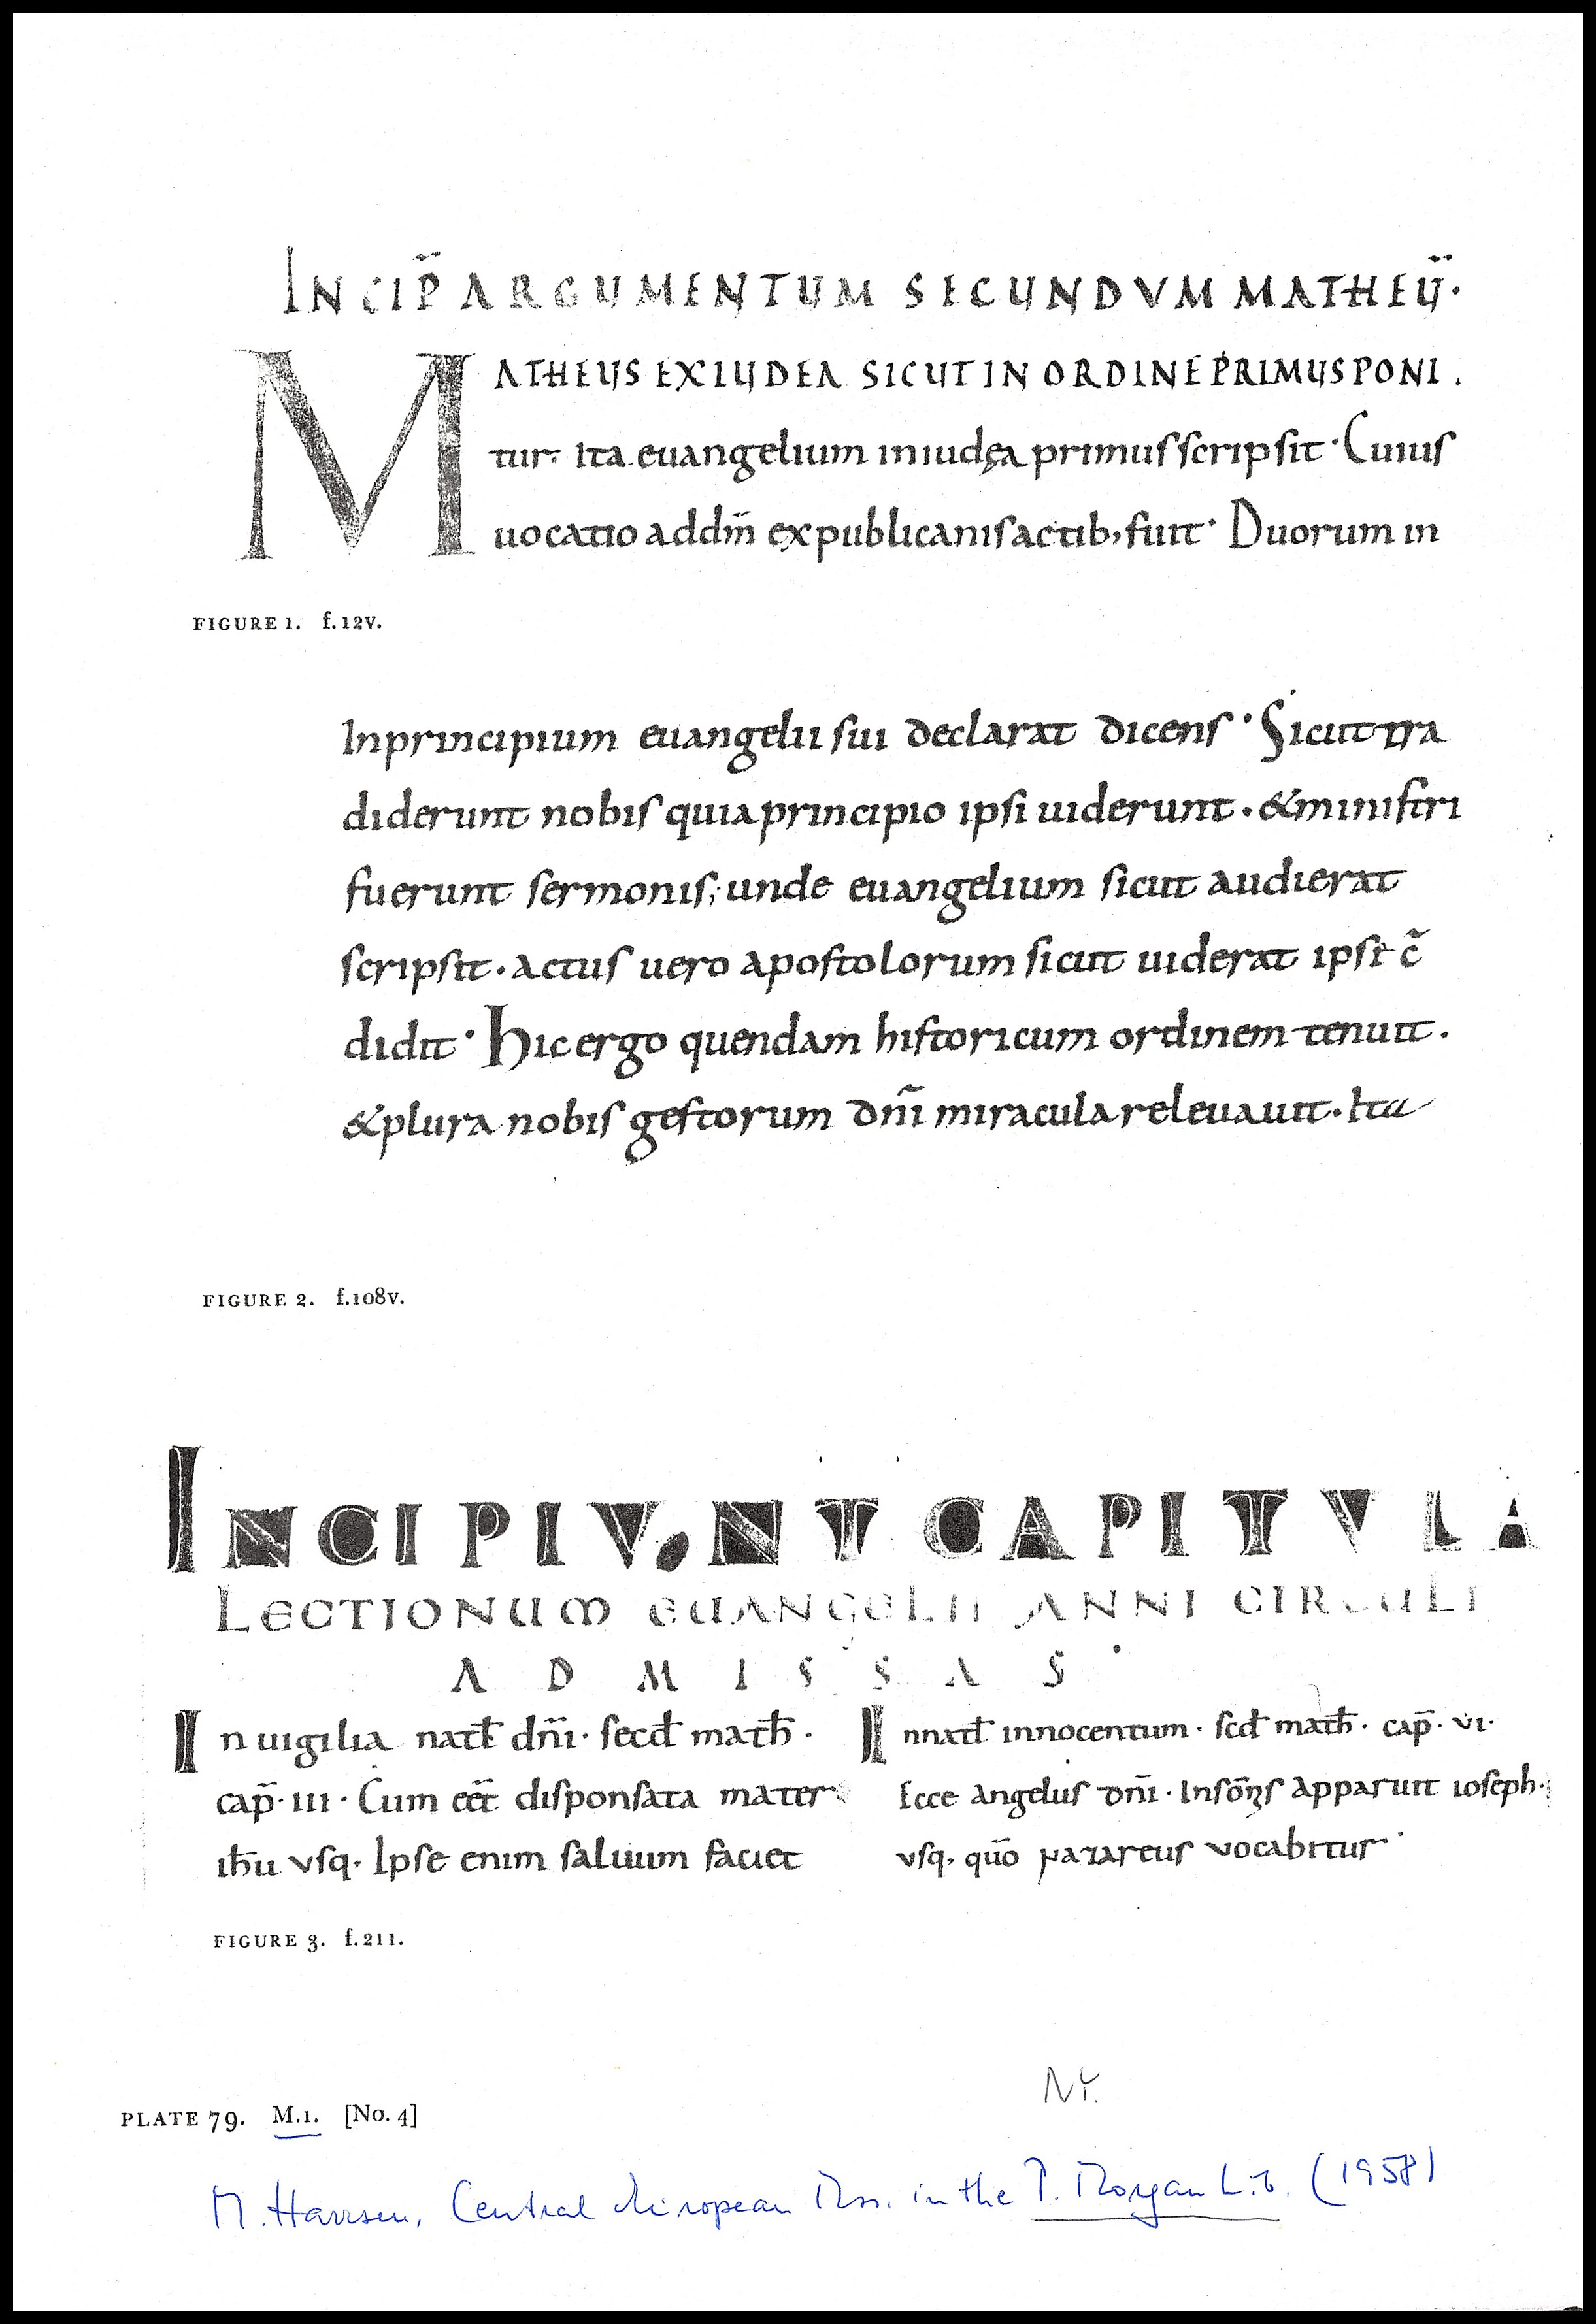 INCIP̄ ARGUMENTUM SECUNDVM MATHEIJ·
MATHEUS EX IUDEA SICUT IN ORDINE PRIMUS PONI
tur· Ita euangelium in iudęa primus scripsit· Cuius
uocatio ad dm̄ ex publicanis actib; fuit· Duorum in
FIGURE 1. f.12v.
In principium euangelii sui declarat dicens· Sicut tra
diderunt nobis qui a principio ipsi uiderunt· & ministri
fuerunt sermonis; unde euangelium sicut audierat
scripsit· actus uero apostolorum sicut uiderat ipse c̄
didit· Hic ergo quendam historicum ordinem tenuit·
& plura nobis gestorum dn̄i miracula releuauit· Ita
FIGURE 2. f.108v.
INCIPIVNT CAPITVLA
LECTIONUM EUANGELII ANNI CIRCULI
AD MISSAS·
In uigilia natł dn̄i· secđ math̄·
cap̄· III· Cum eēt disponsata mater
ih̄u vsq· Ipse enim saluum faciet
In natł innocentum· scđ math̄· cap̄· VI·
Ecce angelus dn̄i· In somn̄s apparuit ioseph·
vsq· qūo nazareus vocabitur·
FIGURE 3. f.211.
NY.
PLATE 79. M.1. [No. 4]
M. Harrsen, Central European Mss. in the P. Morgan Lib. (1958)